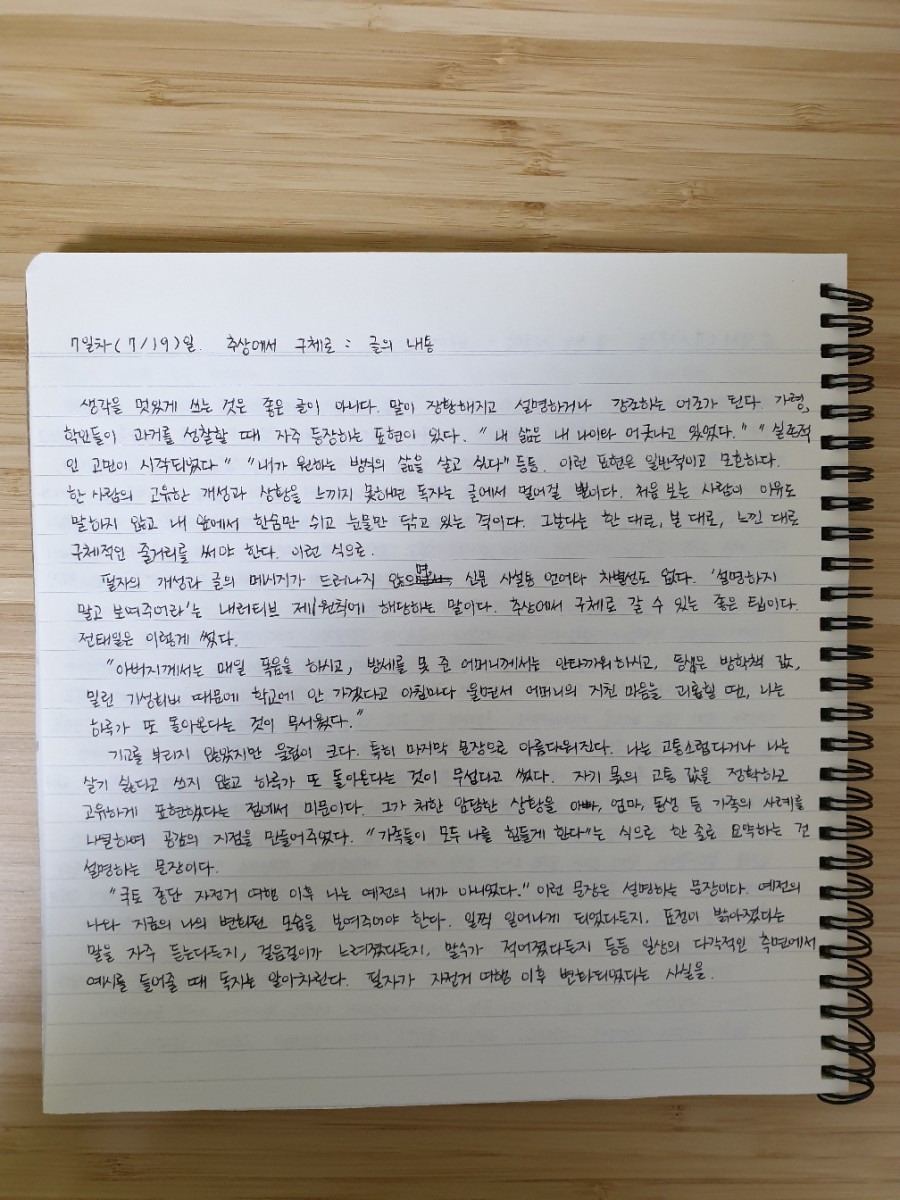 7일차(7/19)일. 추상에서 구체로 : 글의 내통
생각을 멋있게 쓰는 것은 좋은 글이 아니다. 말이 장황해지고 설명하거나 강조하는 어조가 된다. 가령,
학인들이 과거를 성찰할 때 자주 등장하는 표현이 있다. "내 삶은 내 나이와 어긋나고 있었다." "실존적
인 고민이 시작되었다" "내가 원하는 방식의 삶을 살고 싶다" 등등. 이런 표현은 일반적이고 모호하다.
한 사람의 고유한 개성과 상황을 느끼지 못하면 독자는 글에서 멀어질 뿐이다. 처음 보는 사람이 이유도
말하지 않고 내 앞에서 한숨만 쉬고 눈물만 닦고 있는 격이다. 그보다는 한 대로, 본 대로, 느낀 대로
구체적인 줄거리를 써야 한다. 이런 식으로.
필자의 개성과 글의 메시지가 드러나지 않으면 신문 사설용 언어와 차별선도 없다. '설명하지
말고 보여주어라'는 내러티브 제1원칙에 해당하는 말이다. 추상에서 구체로 갈 수 있는 좋은 팁이다.
전태일은 이렇게 썼다.
"아버지께서는 매일 폭음을 하시고, 방세를 못 준 어머니께서는 안타까워하시고, 동생은 방학책 값,
밀린 기성회비 때문에 학교에 안 가겠다고 아침마다 울면서 어머니의 지친 마음을 괴롭힐 땐, 나는
하루가 또 돌아온다는 것이 무서웠다."
기교를 부리지 않았지만 울림이 크다. 특히 마지막 문장으로 아름다워진다. 나는 고통스럽다거나 나는
살기 싫다고 쓰지 않고 하루가 또 돌아온다는 것이 무섭다고 썼다. 자기 몫의 고통 값을 정확하고
고유하게 표현했다는 점에서 미문이다. 그가 처한 암담한 상황을 아빠, 엄마, 동생 등 가족의 사례를
나열하며 공감의 지점을 만들어주었다. "가족들이 모두 나를 힘들게 한다"는 식으로 한 줄로 요약하는 건
설명하는 문장이다.
"국토 종단 자전거 여행 이후 나는 예전의 내가 아니었다." 이런 문장은 설명하는 문장이다. 예전의
나와 지금의 나의 변화된 모습을 보여주어야 한다. 일찍 일어나게 되었다든지. 표정이 밝아졌다는
말을 자주 듣는다든지, 걸음걸이가 느려졌다든지. 말수가 적어졌다든지 등등 일상의 다각적인 측면에서
예시를 들어줄 때 독자는 알아차린다. 필자가 자전거 여행 이후 변화되었다는 사실을.